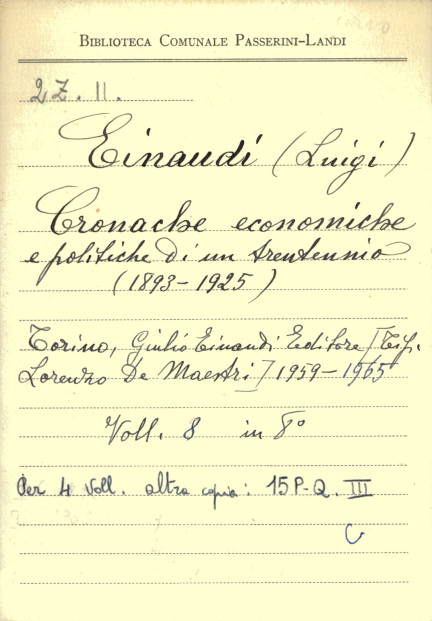 BIBLIOTECA COMUNALE PASSERINI-LANDI
2Z. II.
Einaudi (Luigi)
Cronache economiche
e politiche di un trentennio
(1893-1925)
Torino, Giulio Einaudi Editore [Tip.
Lorenzo De Maestri] 1959-1965
Voll. 8 in 8°
Per 4 Voll. altra copia: 15 P-Q. III